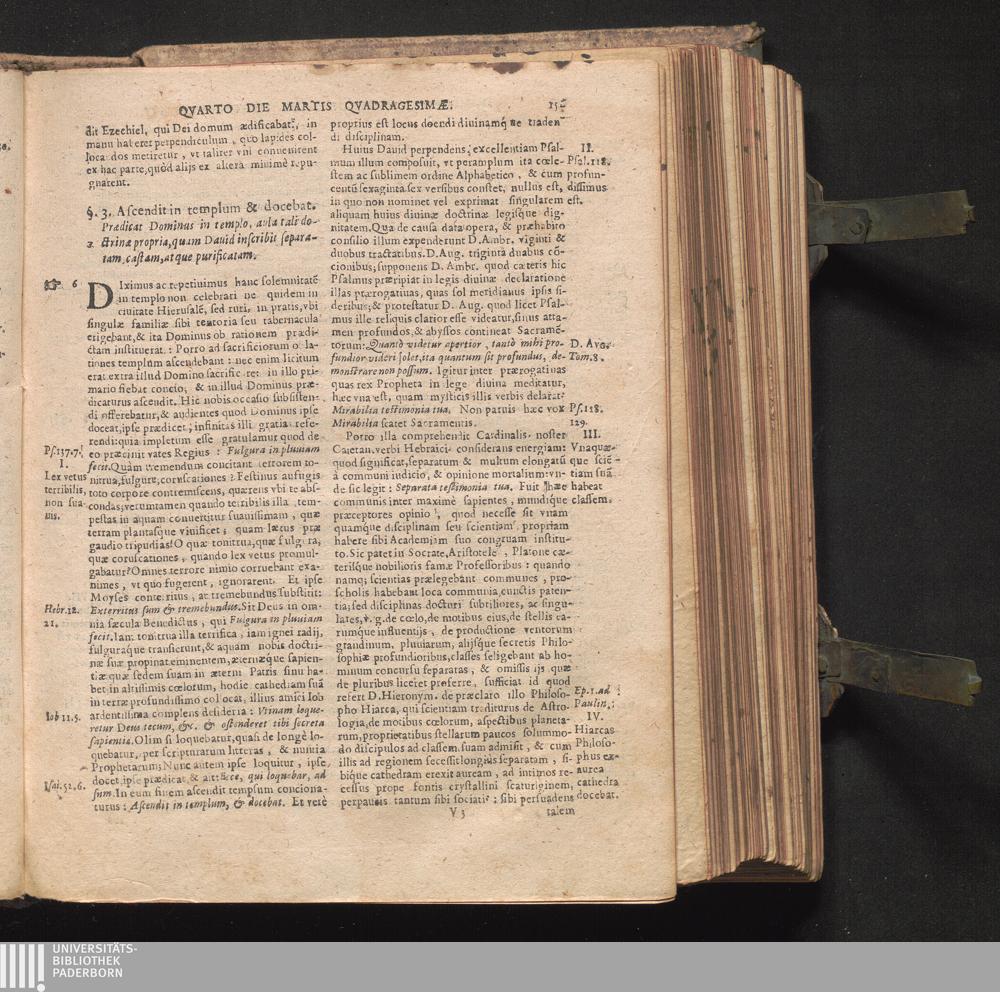 QVARTO DIE MARTIS QVADRAGESIMÆ.
dit Ezechiel, qui Dei domum ædificabat, in
manu haberet perpendiculum, quo lapides col-
locandos metiretur, vt taliter vni conuenirent
ex hac parte, quòd alijs ex altera minimè repu-
gnarent.
§. 3. Ascendit in templum & docebat.
Prædicat Dominus in templo, aula tali do-
ctrinæ propria, quam Dauid inscribit separa-
tam, castam, atque purificatam.
6
DIximus ac repetiuimus hanc solemnitatē
in templo non celebrari ne quidem in
ciuitate Hierusalē, sed ruri, in pratis, vbi
singulæ familiæ sibi tentoria seu tabernacula
erigebant, & ita Dominus ob rationem prædi-
ctam instituerat: Porro ad sacrificiorum obla-
tiones templum ascendebant: nec enim licitum
erat extra illud Domino sacrificare: in illo pri-
mario fiebat concio, & in illud Dominus præ-
dicaturus ascendit. Hic nobis occasio subsisten-
di offerebatur, & audientes quod Dominus ipse
doceat, ipse prædicet; infinitas illi gratias refe-
rendi: quia impletum esse gratulamur quod de
Ps. 137.7.
eo præcinit vates Regius: Fulgura in pluuiam
I.
fecit. Quàm tremendum concitant terrorem to-
Lex vetus
nitrua, fulgura, coruscationes? Festinus aufugis
terribilis,
toto corpore contremiscens, quærens vbi te abs-
non sua-
condas; verumtamen quando terribilis illa tem-
uis.
pestas in aquam conuertitur suauissimam, quæ
terram plantasque viuificet; quam lætus præ
gaudio tripudias? O quæ tonitrua, quæ fulgura,
quæ coruscationes, quando lex vetus promul-
gabatur? Omnes terrore nimio corruebant exa-
nimes, vt quo fugerent, ignorarent. Et ipse
Moyses conterritus, ac tremebundus substitit:
Hebr. 12.
Exterritus sum & tremebundus. Sit Deus in om-
21.
nia sæcula Benedictus, qui Fulgura in pluuiam
fecit. Iam tonitrua illa terrifica, iam ignei radij,
fulguraque transierunt, & aquam nobis doctri-
næ suæ propinat eminentem, æternæque sapien-
tiæ quæ sedem suam in æterni Patris sinu ha-
bet in altissimis cœlorum, hodie cathedram suā
in terræ profundissimo collocat, illius amici Iob
Iob 11.5.
ardentissima complens desideria: Vtinam loque-
retur Deus tecum, &c. & ostenderet tibi secreta
sapientiæ. Olim si loquebatur, quasi de longè lo-
quebatur, per scripturarum litteras, & nuntia
Prophetarum; Nunc autem ipse loquitur, ipse
docet, ipse prædicat, & ait: Ecce, qui loquebar, ad
Isai. 52.6.
sum. In eum finem ascendit templum conciona-
turus: Ascendit in templum, & docebat. Et verè
proprius est locus docendi diuinamq́ue traden-
di disciplinam.
Huius Dauid perpendens, excellentiam Psal-
II.
mum illum composuit, vt peramplum ita cœle-
Psal. 118.
stem ac sublimem ordine Alphabetico, & cum profun-
centū sexaginta sex versibus constet, nullus est, dissimus
in quo non nominet vel exprimat singularem est.
aliquam huius diuinæ doctrinæ legisque dig-
nitatem. Qua de causa data opera, & præhabito
consilio illum expenderunt D. Ambr. viginti &
duobus tractatibus. D. Aug. triginta duabus cō-
cionibus; supponens D. Ambr. quod cæteris hic
Psalmus præripiat in legis diuinæ declaratione
illas prærogatiuas, quas sol meridianus ipsis si-
deribus; & protestatur D. Aug. quod licet Psal-
mus ille reliquis clarior esse videatur, sinus atta-
men profundos, & abyssos contineat Sacramē-
torum: Quantò videtur apertior, tantò mihi pro-
D. Aug.
fundior videri solet, ita quantum sit profundus, de-
Tom. 8.
monstrare non possum. Igitur inter prærogatiuas
quas rex Propheta in lege diuina meditatur,
hæc vna est, quam mysticis illis verbis delarat?
Mirabilia testimonia tua. Non paruis hæc vox
Ps. 118.
Mirabilia scatet Sacramentis.
129.
Porro illa comprehendit Cardinalis noster
III.
Caietan. verbi Hebraici considerans energiam:
Vnaquæ-
quod significat, separatum & multum elongatū
que sciē-
à communi indicio, & opinione mortalium: vn-
tiam suā
de sic legit: Separata testimonia tua. Fuit hæc
habeat
communis inter maximè sapientes, mundique
classem.
præceptores opinio, quod necesse sit vnam
quamque disciplinam seu scientiam propriam
habere sibi Academiam suo congruam institu-
to. Sic patet in Socrate, Aristotele, Platone cæ-
terisque nobilioris famæ Professoribus: quando
namq; scientias prælegebant communes, pro-
scholis habebant loca communia, cunctis paten-
tia; sed disciplinas docturi subtiliores, ac singu-
lares, v. g. de cœlo, de motibus eius, de stellis ea-
rumque influentijs, de productione ventorum
grandinum, pluuiarum, alijsque secretis Philo-
sophiæ profundioribus, classes seligebant ab ho-
minum concursu separatas, & omissis ijs quæ
de pluribus liceret proferre, sufficiat id quod
refert D. Hieronym. de præclaro illo Philoso-
Ep. 1. ad
pho Hiarca, qui scientiam traditurus de Astro-
Paulin.
logia, de motibus cœlorum, aspectibus planeta-
IV.
rum, proprietatibus stellarum paucos solummo-
Hiarcas
do discipulos ad classem suam admisit, & cum
Philoso-
illis ad regionem secessit longius separatam, si-
phus ex
bique cathedram erexit auream, ad intimos re-
aurea
cessus prope fontis crystallini scaturiginem,
cathedra
perpaucis tantum sibi sociatis: sibi persuadens
docebat.
V 3
talem
UNIVERSITÄTS-
BIBLIOTHEK
PADERBORN